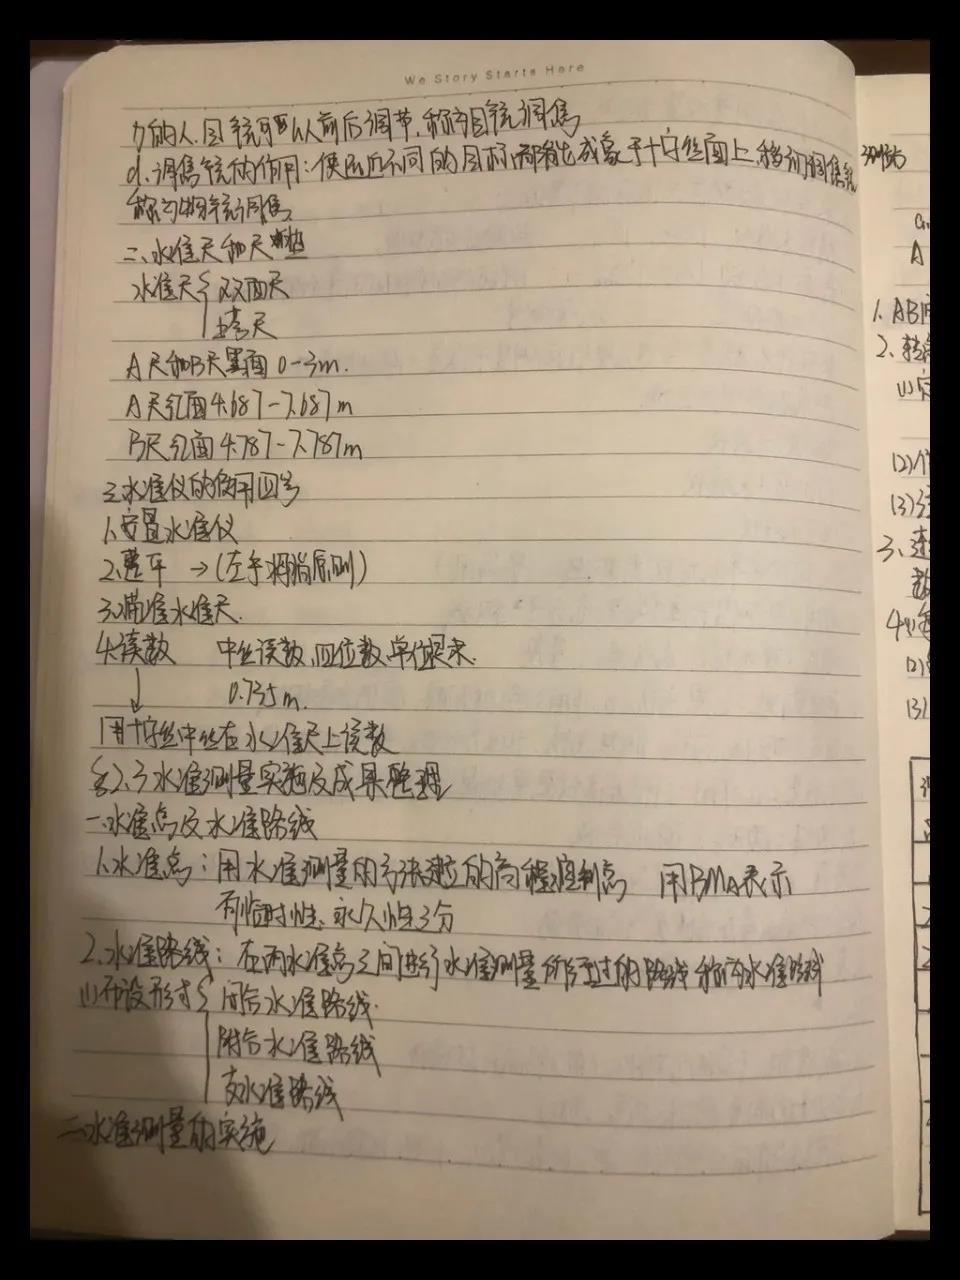 We Story Starts Here
力的人.目镜可以前后调节,称为目镜调焦
d、调焦镜的作用:使远近不同的目标,都能成象于十字丝面上,移动调焦镜
称为物镜调焦
二、水准尺和尺垫
水准尺{双面尺
塔尺
A尺和B尺黑面0-3m.
A尺红面4.687-7.687m
B尺红面4.787-7.787m
三水准仪的使用
1.安置水准仪
2.整平 →(左手拇指原则)
3.瞄准水准尺.
4.读数 中丝读数,四位数,单位是米.
↓ 0.735m.
用十字丝中丝在水准尺上读数
§2.3水准测量实施及成果整理
一.水准点及水准路线
1.水准点:用水准测量的方法建立的高程控制点 用BMA表示
有临时性、永久性之分
2.水准路线:在两水准点之间进行水准测量所经过的路线称为水准路线
(1)布设形式{闭合水准路线.
附合水准路线
支水准路线
二.水准测量的实施
A
1. AB
2. 转
(1)
(2)
(3)
3、
4.(1)
(2)
(3)